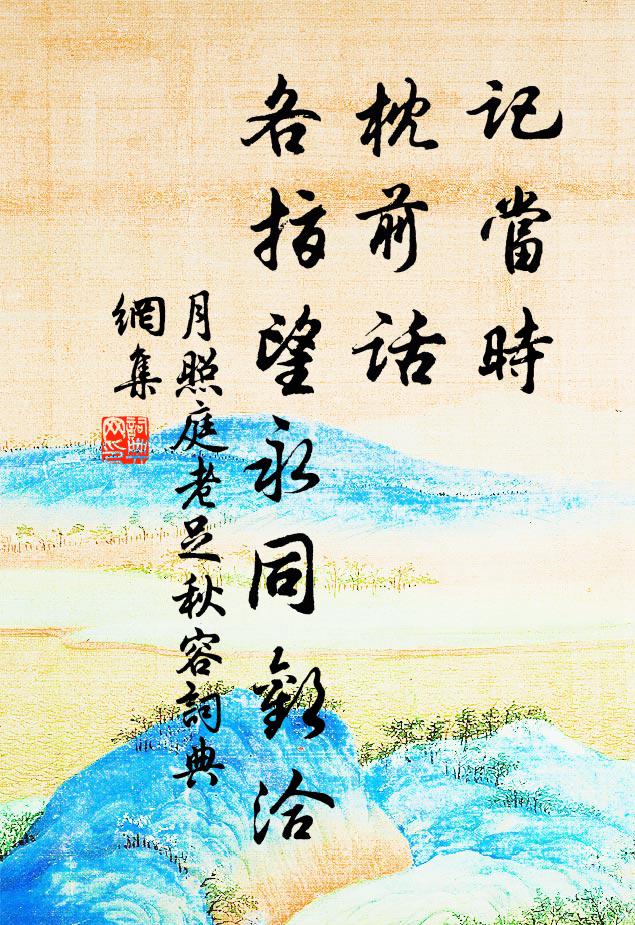 記當時
枕前話
各指望永同歡洽
月照庭老足秋容詞典
網集